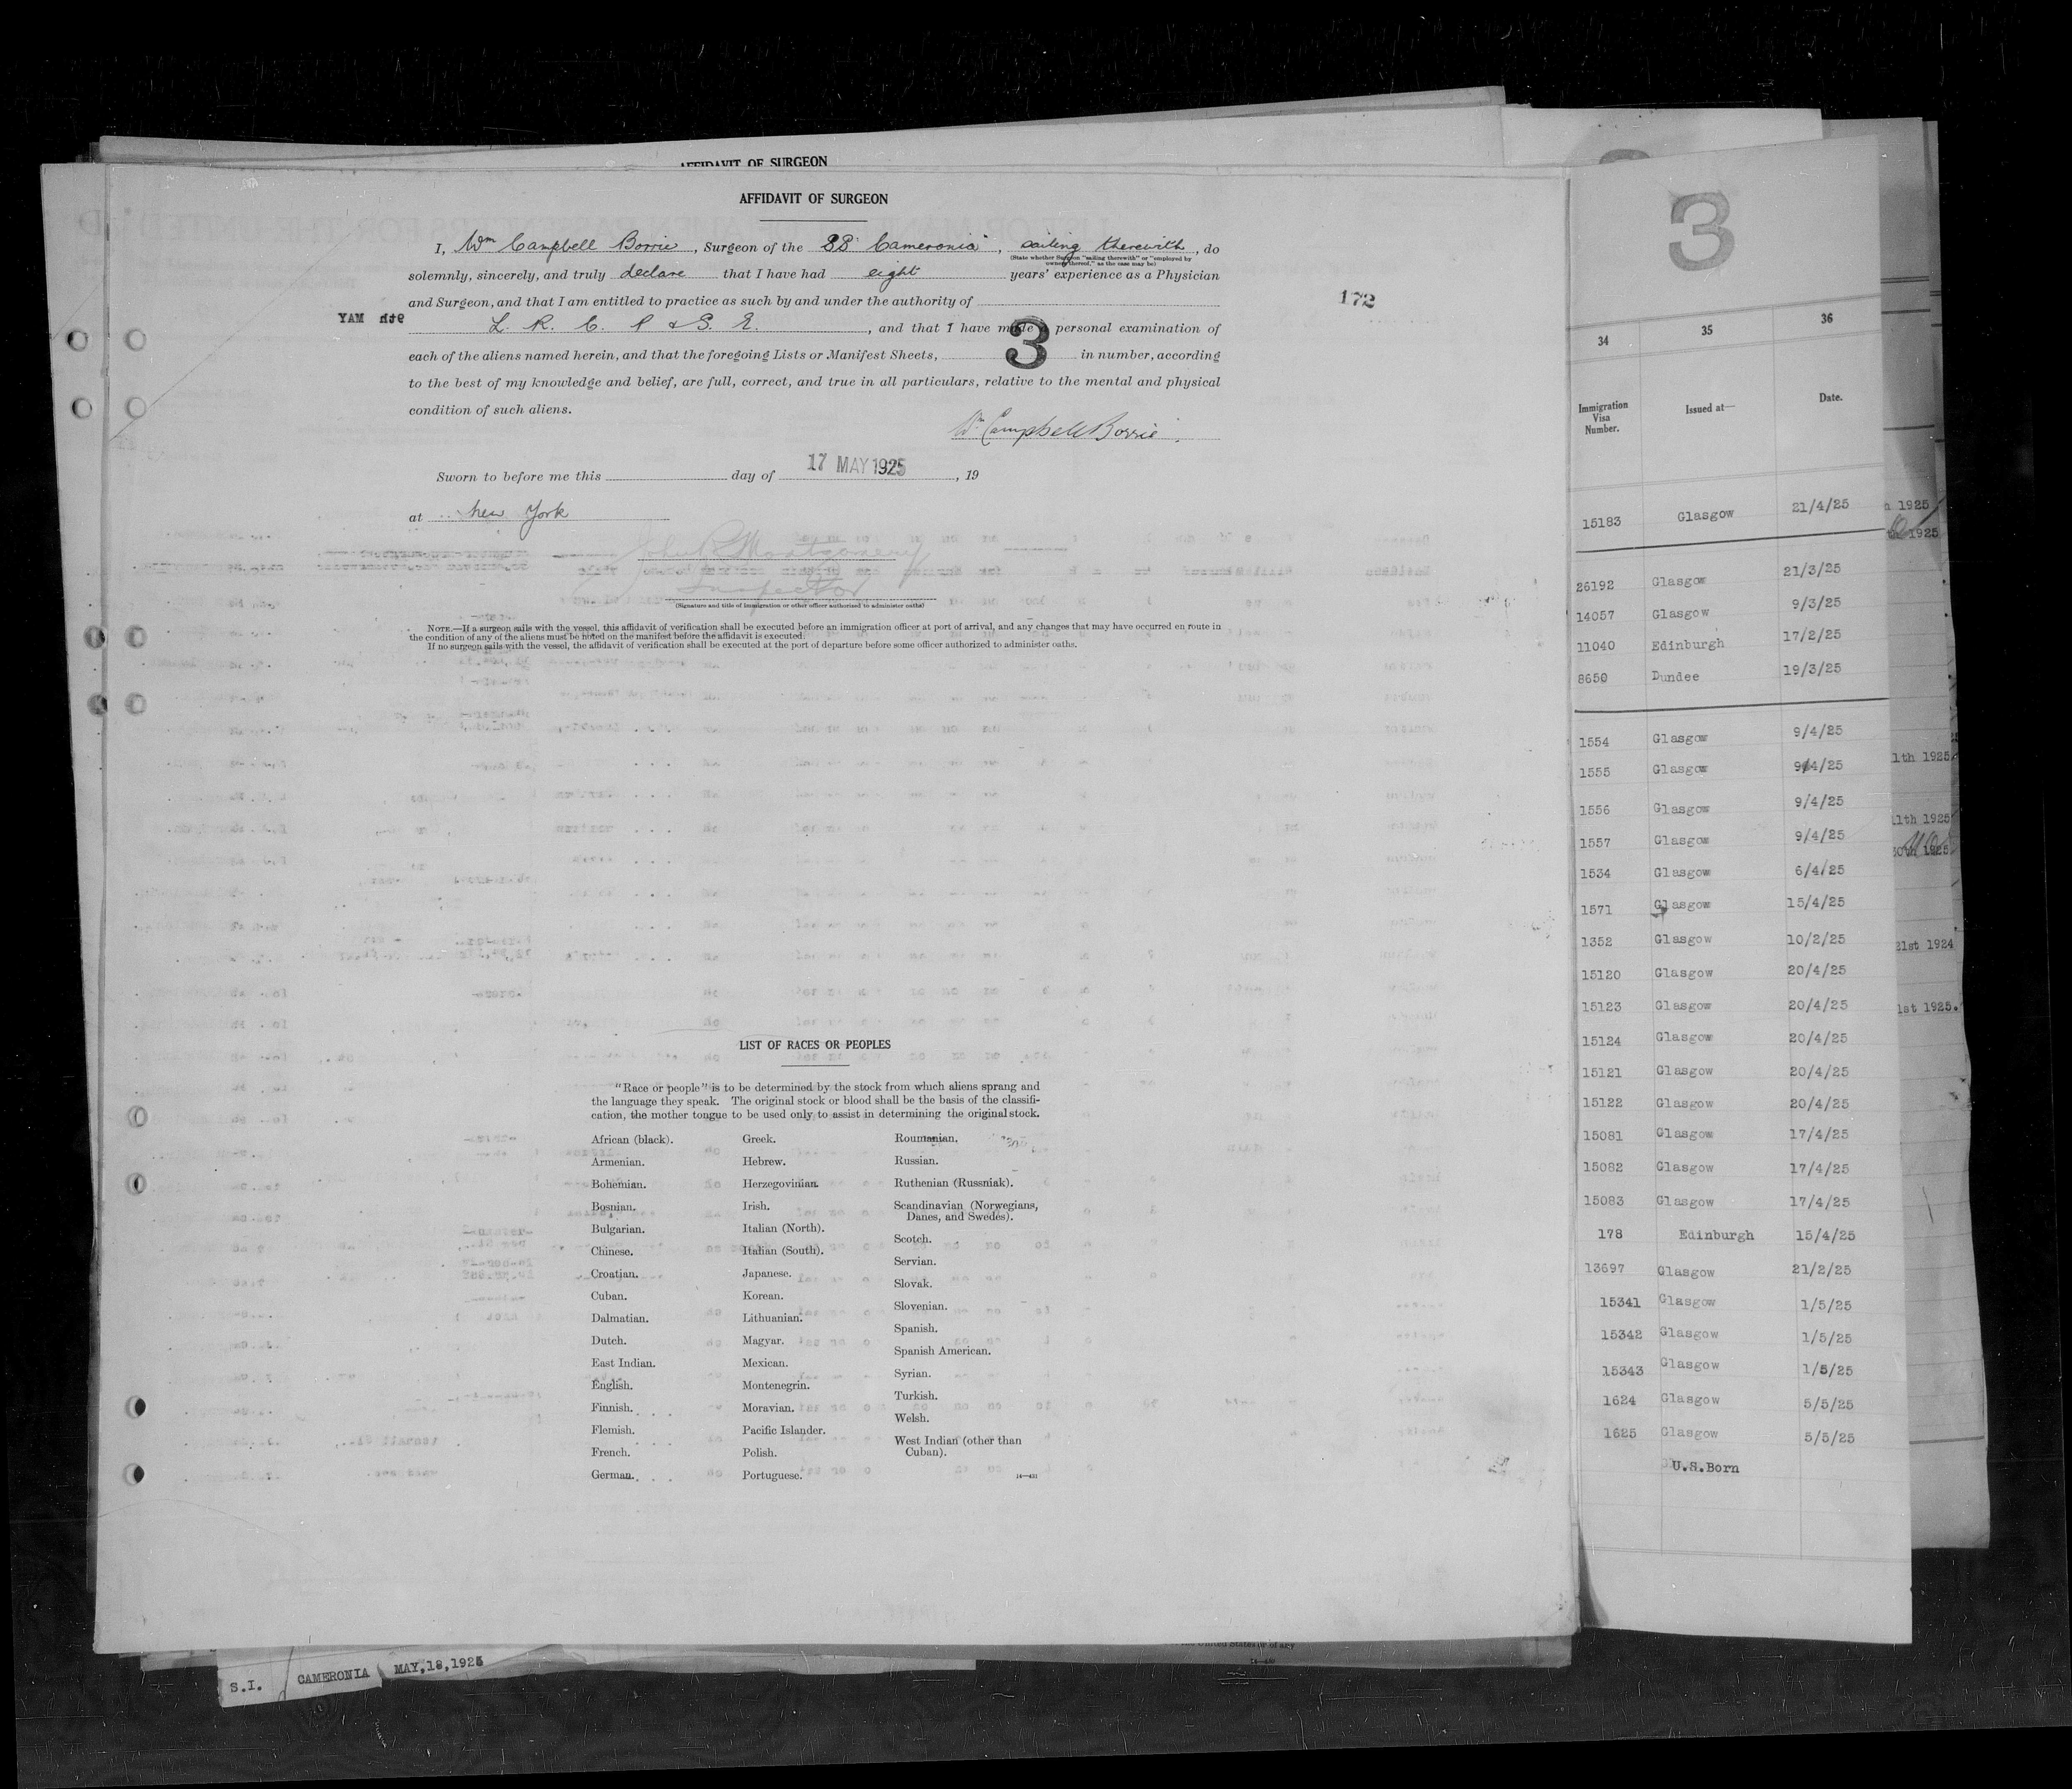 AFFIDAVIT OF SURGEON
AFFIDAVIT OF SURGEON
I, Wm Campbell Borrie, Surgeon of the SS Cameronia, sailing therewith, do
(State whether Surgeon "sailing therewith" or "employed by
owners thereof," as the case may be)
solemnly, sincerely, and truly declare that I have had eight years' experience as a Physician
and Surgeon, and that I am entitled to practice as such by and under the authority of
L. R. C. P & S. E., and that I have made personal examination of
each of the aliens named herein, and that the foregoing Lists or Manifest Sheets, 3 in number, according
to the best of my knowledge and belief, are full, correct, and true in all particulars, relative to the mental and physical
condition of such aliens.
Wm Campbell Borrie.
Sworn to before me this day of 17 MAY 1925, 19
at New York
John R Montgomery
Inspector
(Signature and title of immigration or other officer authorized to administer oaths)
NOTE.—If a surgeon sails with the vessel, this affidavit of verification shall be executed before an immigration officer at port of arrival, and any changes that may have occurred en route in
the condition of any of the aliens must be noted on the manifest before the affidavit is executed.
If no surgeon sails with the vessel, the affidavit of verification shall be executed at the port of departure before some officer authorized to administer oaths.
172
YAM
LIST OF RACES OR PEOPLES
"Race or people" is to be determined by the stock from which aliens sprang and
the language they speak. The original stock or blood shall be the basis of the classifi-
cation, the mother tongue to be used only to assist in determining the original stock.
African (black).
Armenian.
Bohemian.
Bosnian.
Bulgarian.
Chinese.
Croatian.
Cuban.
Dalmatian.
Dutch.
East Indian.
English.
Finnish.
Flemish.
French.
German.
Greek.
Hebrew.
Herzegovinian.
Irish.
Italian (North).
Italian (South).
Japanese.
Korean.
Lithuanian.
Magyar.
Mexican.
Montenegrin.
Moravian.
Pacific Islander.
Polish.
Portuguese.
Roumanian.
Russian.
Ruthenian (Russniak).
Scandinavian (Norwegians,
Danes, and Swedes).
Scotch.
Servian.
Slovak.
Slovenian.
Spanish.
Spanish American.
Syrian.
Turkish.
Welsh.
West Indian (other than
Cuban).
14—431
3
34 35 36
Immigration Visa Number. Issued at— Date.
15183 Glasgow 21/4/25
26192 Glasgow 21/3/25
14057 Glasgow 9/3/25
11040 Edinburgh 17/2/25
8650 Dundee 19/3/25
1554 Glasgow 9/4/25
1555 Glasgow 9/4/25
1556 Glasgow 9/4/25
1557 Glasgow 9/4/25
1534 Glasgow 6/4/25
1571 Glasgow 15/4/25
1352 Glasgow 10/2/25
15120 Glasgow 20/4/25
15123 Glasgow 20/4/25
15124 Glasgow 20/4/25
15121 Glasgow 20/4/25
15122 Glasgow 20/4/25
15081 Glasgow 17/4/25
15082 Glasgow 17/4/25
15083 Glasgow 17/4/25
178 Edinburgh 15/4/25
13697 Glasgow 21/2/25
15341 Glasgow 1/5/25
15342 Glasgow 1/5/25
15343 Glasgow 1/5/25
1624 Glasgow 5/5/25
1625 Glasgow 5/5/25
U.S.Born
1925
1925
1th 1925
11th 1925
30th 1925
21st 1924
1st 1925.
S.I. CAMERONIA MAY,18,1925